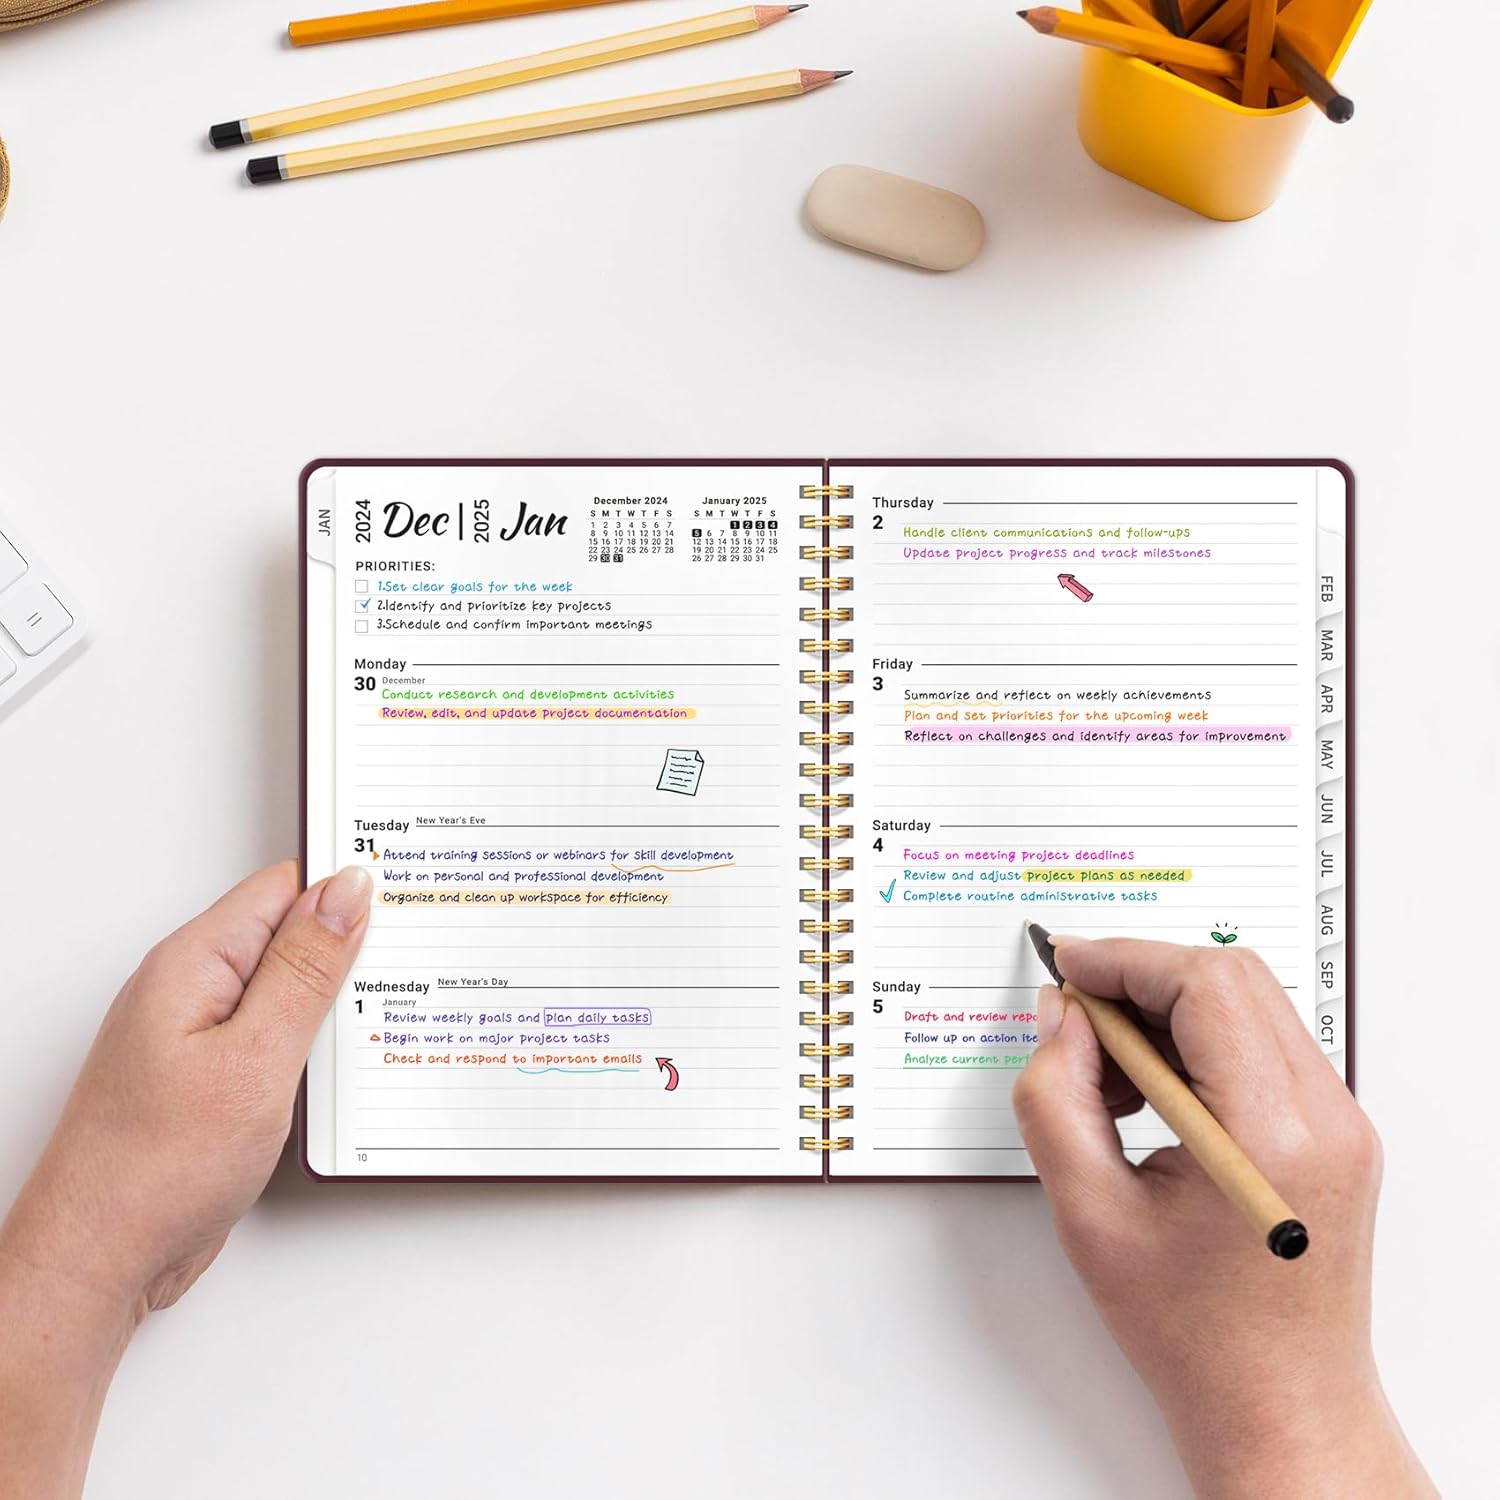 JAN
2024 Dec | 2025 Jan
December 2024
S M T W T F S
1 2 3 4 5 6 7
8 9 10 11 12 13 14
15 16 17 18 19 20 21
22 23 24 25 26 27 28
29 30 31
January 2025
S M T W T F S
1 2 3 4
5 6 7 8 9 10 11
12 13 14 15 16 17 18
19 20 21 22 23 24 25
26 27 28 29 30 31
PRIORITIES:
1.Set clear goals for the week
2.Identify and prioritize key projects
3.Schedule and confirm important meetings
Monday
30 December
Conduct research and development activities
Review, edit, and update project documentation
Tuesday New Year's Eve
31
Attend training sessions or webinars for skill development
Work on personal and professional development
Organize and clean up workspace for efficiency
Wednesday New Year's Day
1 January
Review weekly goals and plan daily tasks
Begin work on major project tasks
Check and respond to important emails
10
Thursday
2
Handle client communications and follow-ups
Update project progress and track milestones
Friday
3
Summarize and reflect on weekly achievements
Plan and set priorities for the upcoming week
Reflect on challenges and identify areas for improvement
Saturday
4
Focus on meeting project deadlines
Review and adjust project plans as needed
Complete routine administrative tasks
Sunday
5
Draft and review repo
Follow up on action ite
Analyze current perf
FEB
MAR
APR
MAY
JUN
JUL
AUG
SEP
OCT